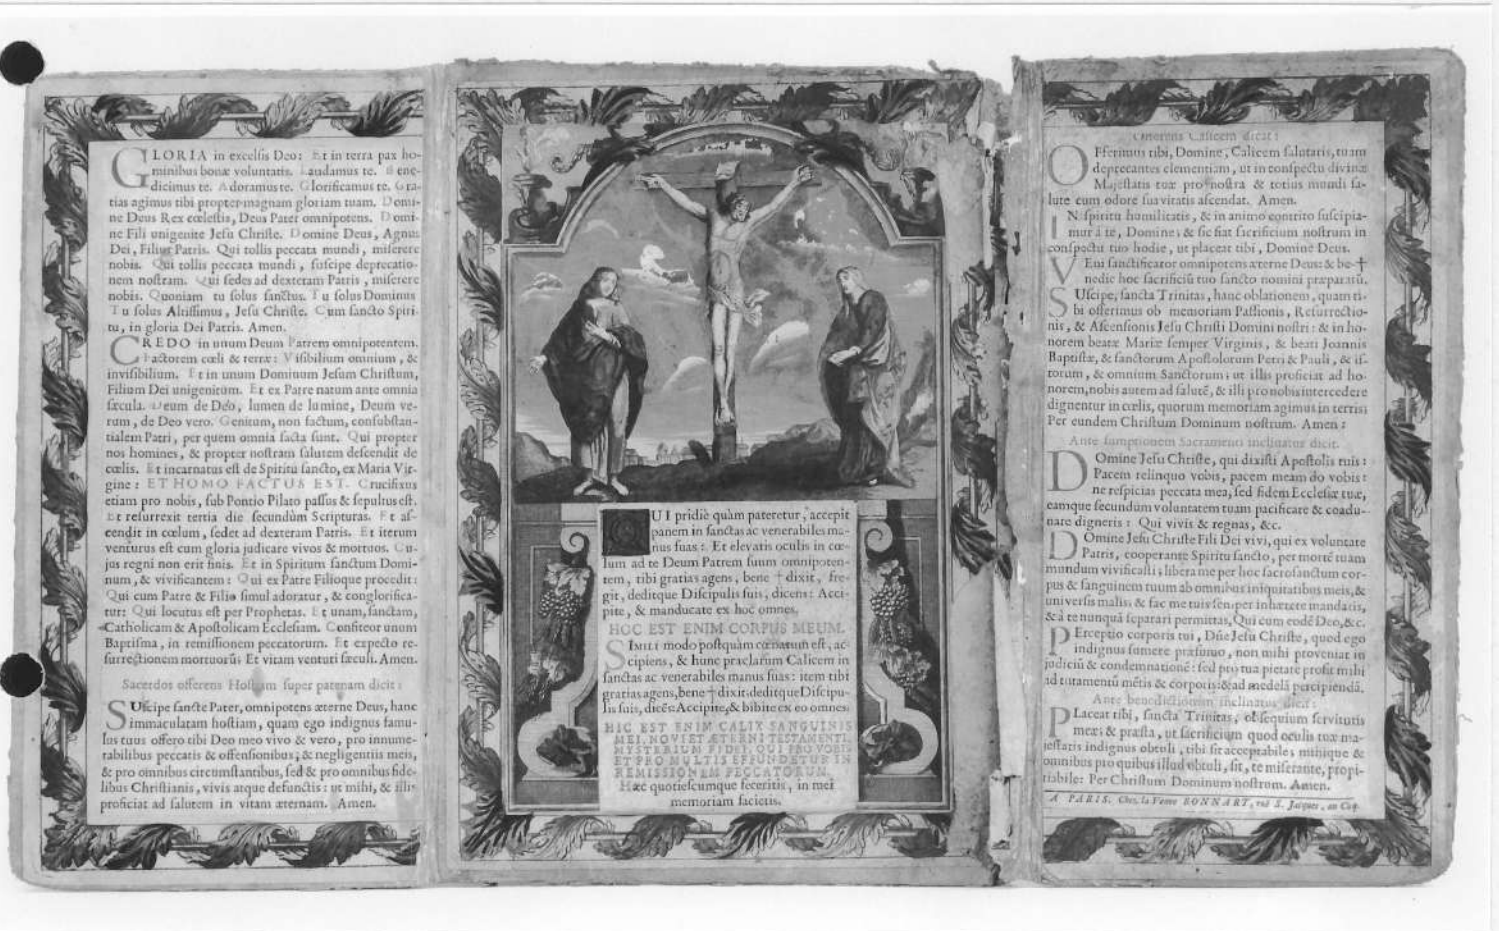 GLORIA in excelſis Deo: Et in terra pax ho-
minibus bonæ voluntatis. Laudamus te. Bene-
dicimus te. Adoramus te. Glorificamus te. Gra-
tias agimus tibi propter magnam gloriam tuam. Domi-
ne Deus Rex cœleſtis, Deus Pater omnipotens. Domi-
ne Fili unigenite Jeſu Chriſte. Domine Deus, Agnus
Dei, Filius Patris. Qui tollis peccata mundi, miſerere
nobis. Qui tollis peccata mundi, ſuſcipe deprecatio-
nem noſtram. Qui ſedes ad dexteram Patris, miſerere
nobis. Quoniam tu ſolus ſanctus. Tu ſolus Dominus
Tu ſolus Altiſſimus, Jeſu Chriſte. Cum ſancto Spiri-
tu, in gloria Dei Patris. Amen.
CREDO in unum Deum Patrem omnipotentem.
Factorem cœli & terræ: Viſibilium omnium, &
inviſibilium. Et in unum Dominum Jeſum Chriſtum,
Filium Dei unigenitum. Et ex Patre natum ante omnia
ſæcula. Deum de Deo, lumen de lumine, Deum ve-
rum, de Deo vero. Genitum, non factum, conſubſtan-
tialem Patri, per quem omnia facta ſunt. Qui propter
nos homines, & propter noſtram ſalutem deſcendit de
cœlis. Et incarnatus eſt de Spiritu ſancto, ex Maria Vir-
gine: ET HOMO FACTUS EST. Crucifixus
etiam pro nobis, ſub Pontio Pilato paſſus & ſepultus eſt.
Et reſurrexit tertia die ſecundùm Scripturas. Et aſ-
cendit in cœlum, ſedet ad dexteram Patris. Et iterum
venturus eſt cum gloria judicare vivos & mortuos. Cu-
jus regni non erit finis. Et in Spiritum ſanctum Domi-
num, & vivificantem: Qui ex Patre Filioque procedit:
Qui cum Patre & Filio ſimul adoratur, & conglorifica-
tur: Qui locutus eſt per Prophetas. Et unam, ſanctam,
Catholicam & Apoſtolicam Eccleſiam. Confiteor unum
Baptiſma, in remiſſionem peccatorum. Et expecto re-
ſurrectionem mortuorũ: Et vitam venturi ſæculi. Amen.
Sacerdos offerens Hoſtiam ſuper patenam dicit:
SUſcipe ſancte Pater, omnipotens æterne Deus, hanc
immaculatam hoſtiam, quam ego indignus famu-
lus tuus offero tibi Deo meo vivo & vero, pro innume-
rabilibus peccatis & offenſionibus, & negligentiis meis,
& pro omnibus circumſtantibus, ſed & pro omnibus fide-
libus Chriſtianis, vivis atque defunctis: ut mihi, & illis
proficiat ad ſalutem in vitam æternam. Amen.
QUI pridiè quàm pateretur, accepit
panem in ſanctas ac venerabiles ma-
nus ſuas: Et elevatis oculis in cœ-
lum ad te Deum Patrem ſuum omnipoten-
tem, tibi gratias agens, bene † dixit, fre-
git, deditque Diſcipulis ſuis, dicens: Acci-
pite, & manducate ex hoc omnes.
HOC EST ENIM CORPUS MEUM.
SIMILI modo poſtquàm cœnatum eſt, ac-
cipiens, & hunc præclarum Calicem in
ſanctas ac venerabiles manus ſuas: item tibi
gratias agens, bene † dixit, deditque Diſcipu-
lis ſuis, dicẽs: Accipite, & bibite ex eo omnes.
HIC EST ENIM CALIX SANGUINIS
MEI, NOVI ET ÆTERNI TESTAMENTI,
MYSTERIUM FIDEI, QUI PRO VOBIS
ET PRO MULTIS EFFUNDETUR IN
REMISSIONEM PECCATORUM.
Hæc quotieſcumque feceritis, in mei
memoriam facietis.
Offerens Calicem dicit:
OFferimus tibi, Domine, Calicem ſalutaris, tuam
deprecantes clementiam, ut in conſpectu divinæ
Majeſtatis tuæ pro noſtra & totius mundi ſa-
lute cum odore ſuavitatis aſcendat. Amen.
IN ſpiritu humilitatis, & in animo contrito ſuſcipia-
mur à te, Domine; & ſic fiat ſacrificium noſtrum in
conſpectu tuo hodie, ut placeat tibi, Domine Deus.
VEni ſanctificator omnipotens æterne Deus: & be-†
nedic hoc ſacrificiũ tuo ſancto nomini præparatũ.
SUſcipe, ſancta Trinitas, hanc oblationem, quam ti-
bi offerimus ob memoriam Paſſionis, Reſurrectio-
nis, & Aſcenſionis Jeſu Chriſti Domini noſtri: & in ho-
norem beatæ Mariæ ſemper Virginis, & beati Joannis
Baptiſtæ, & ſanctorum Apoſtolorum Petri & Pauli, & iſ-
torum, & omnium Sanctorum; ut illis proficiat ad ho-
norem, nobis autem ad ſalutẽ, & illi pro nobis intercedere
dignentur in cœlis, quorum memoriam agimus in terris:
Per eundem Chriſtum Dominum noſtrum. Amen:
Ante ſumptionem Sacramenti inclinatus dicit.
DOmine Jeſu Chriſte, qui dixiſti Apoſtolis tuis:
Pacem relinquo vobis, pacem meam do vobis:
ne reſpicias peccata mea, ſed fidem Eccleſiæ tuæ,
eamque ſecundum voluntatem tuam pacificare & coadu-
nare digneris: Qui vivis & regnas, &c.
DOmine Jeſu Chriſte Fili Dei vivi, qui ex voluntate
Patris, cooperante Spiritu ſancto, per mortẽ tuam
mundum vivificaſti; libera me per hoc ſacroſanctum cor-
pus & ſanguinem tuum ab omnibus iniquitatibus meis, &
univerſis malis: & fac me tuis ſemper inhærere mandatis,
& à te nunquã ſeparari permittas, Qui cum eodẽ Deo, &c.
PErceptio corporis tui, Dñe Jeſu Chriſte, quod ego
indignus ſumere præſumo, non mihi proveniat in
judiciũ & condemnationẽ: ſed pro tua pietate proſit mihi
ad tutamentũ mẽtis & corporis: & ad medelã percipiendã.
Ante benedictionem inclinatus dicit:
PLaceat tibi, ſancta Trinitas, obſequium ſervitutis
meæ; & præſta, ut ſacrificium quod oculis tuæ ma-
jeſtatis indignus obtuli, tibi ſit acceptabile; mihique &
omnibus pro quibus illud obtuli, ſit, te miſerante, propi-
tiabile: Per Chriſtum Dominum noſtrum. Amen.
A PARIS. Chez la Veuve BONNART, ruë S. Jacques, au Coq.